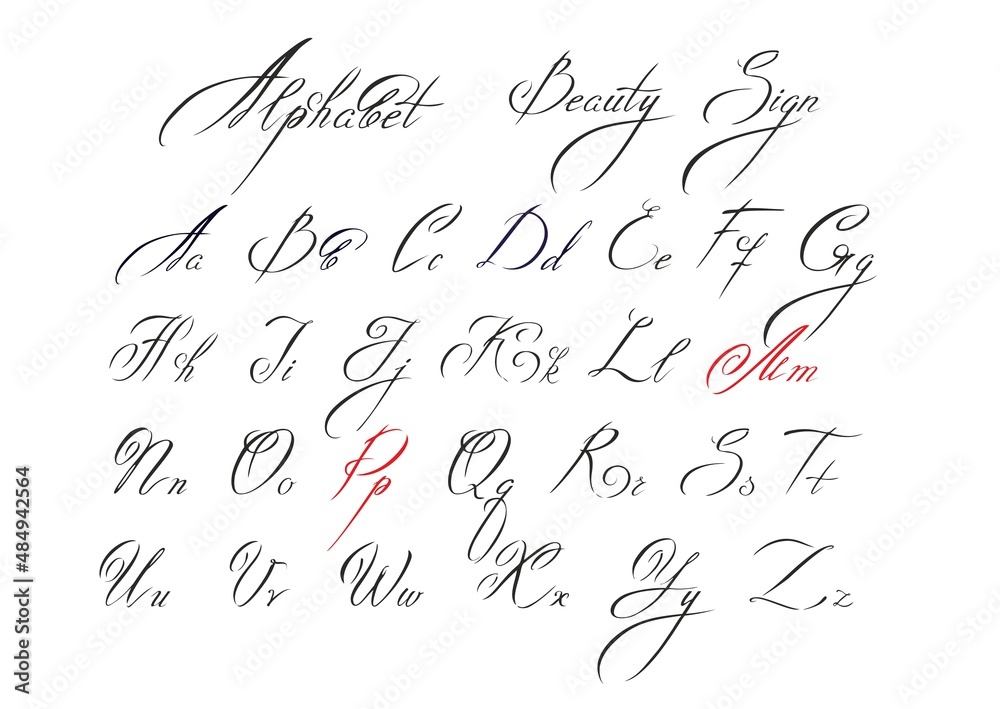 Alphabet Beauty Sign
Aa Bb Cc Dd Ee Ff Gg
Hh Ii Jj Kk Ll Mm
Nn Oo Pp Qq Rr Ss Tt
Uu Vv Ww Xx Yy Zz
Adobe Stock | #484942564